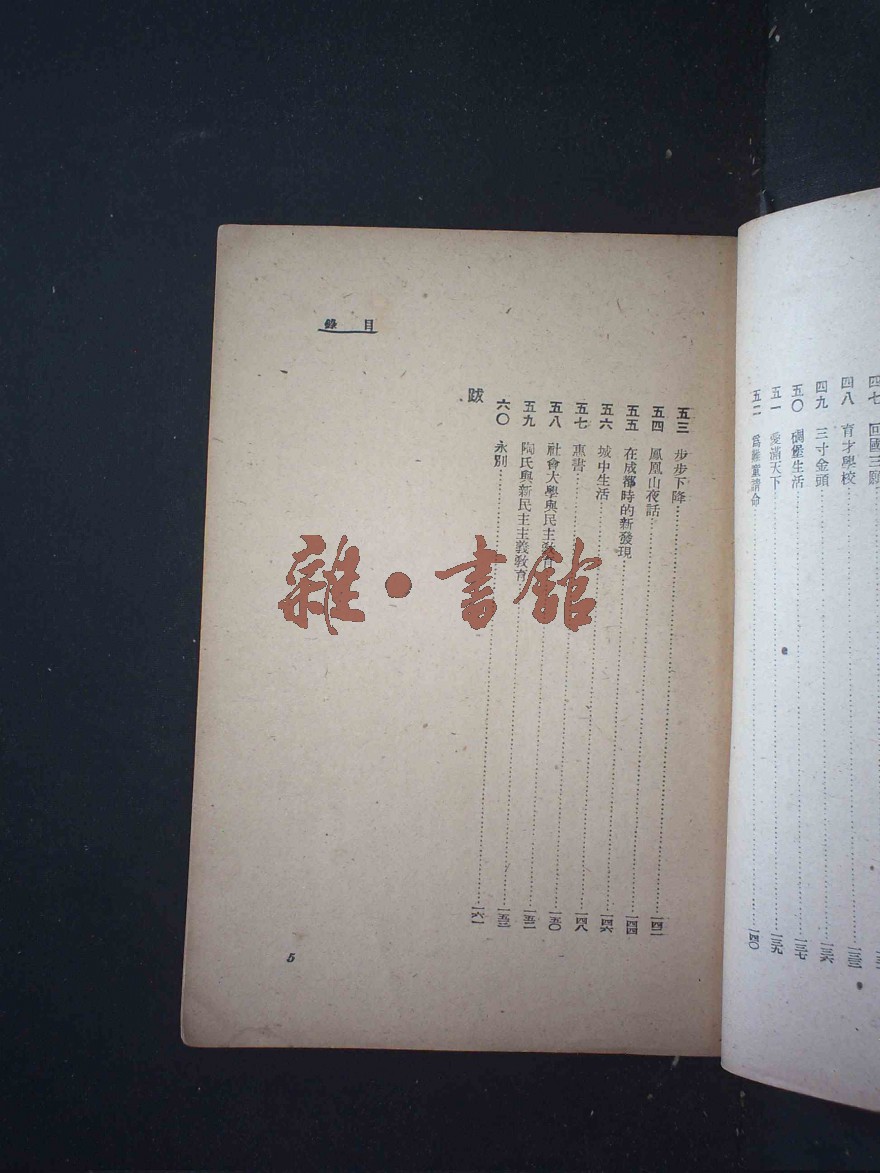 四七 回國三願
四八 育才學校……一三三
四九 三寸金頭……一三六
五〇 碉堡生活……一三七
五一 愛滿天下……一三九
五二 爲難童請命……一四〇
目錄
五三 步步下降……一四二
五四 鳳凰山夜話……一四四
五五 在成都時的新發現……一四六
五六 城中生活……一四八
五七 惠書……一五〇
五八 社會大學與民主教育……一五二
五九 陶氏與新民主主義教育……一五三
六〇 永別……一六一
跋
5
雜·書館